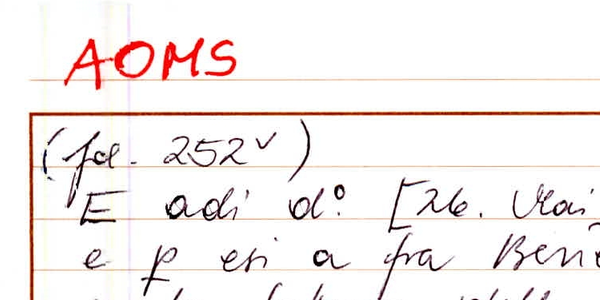 AOMS
(fol. 252v)
E adi d.º [26. Mai
e p esi a fra Ben